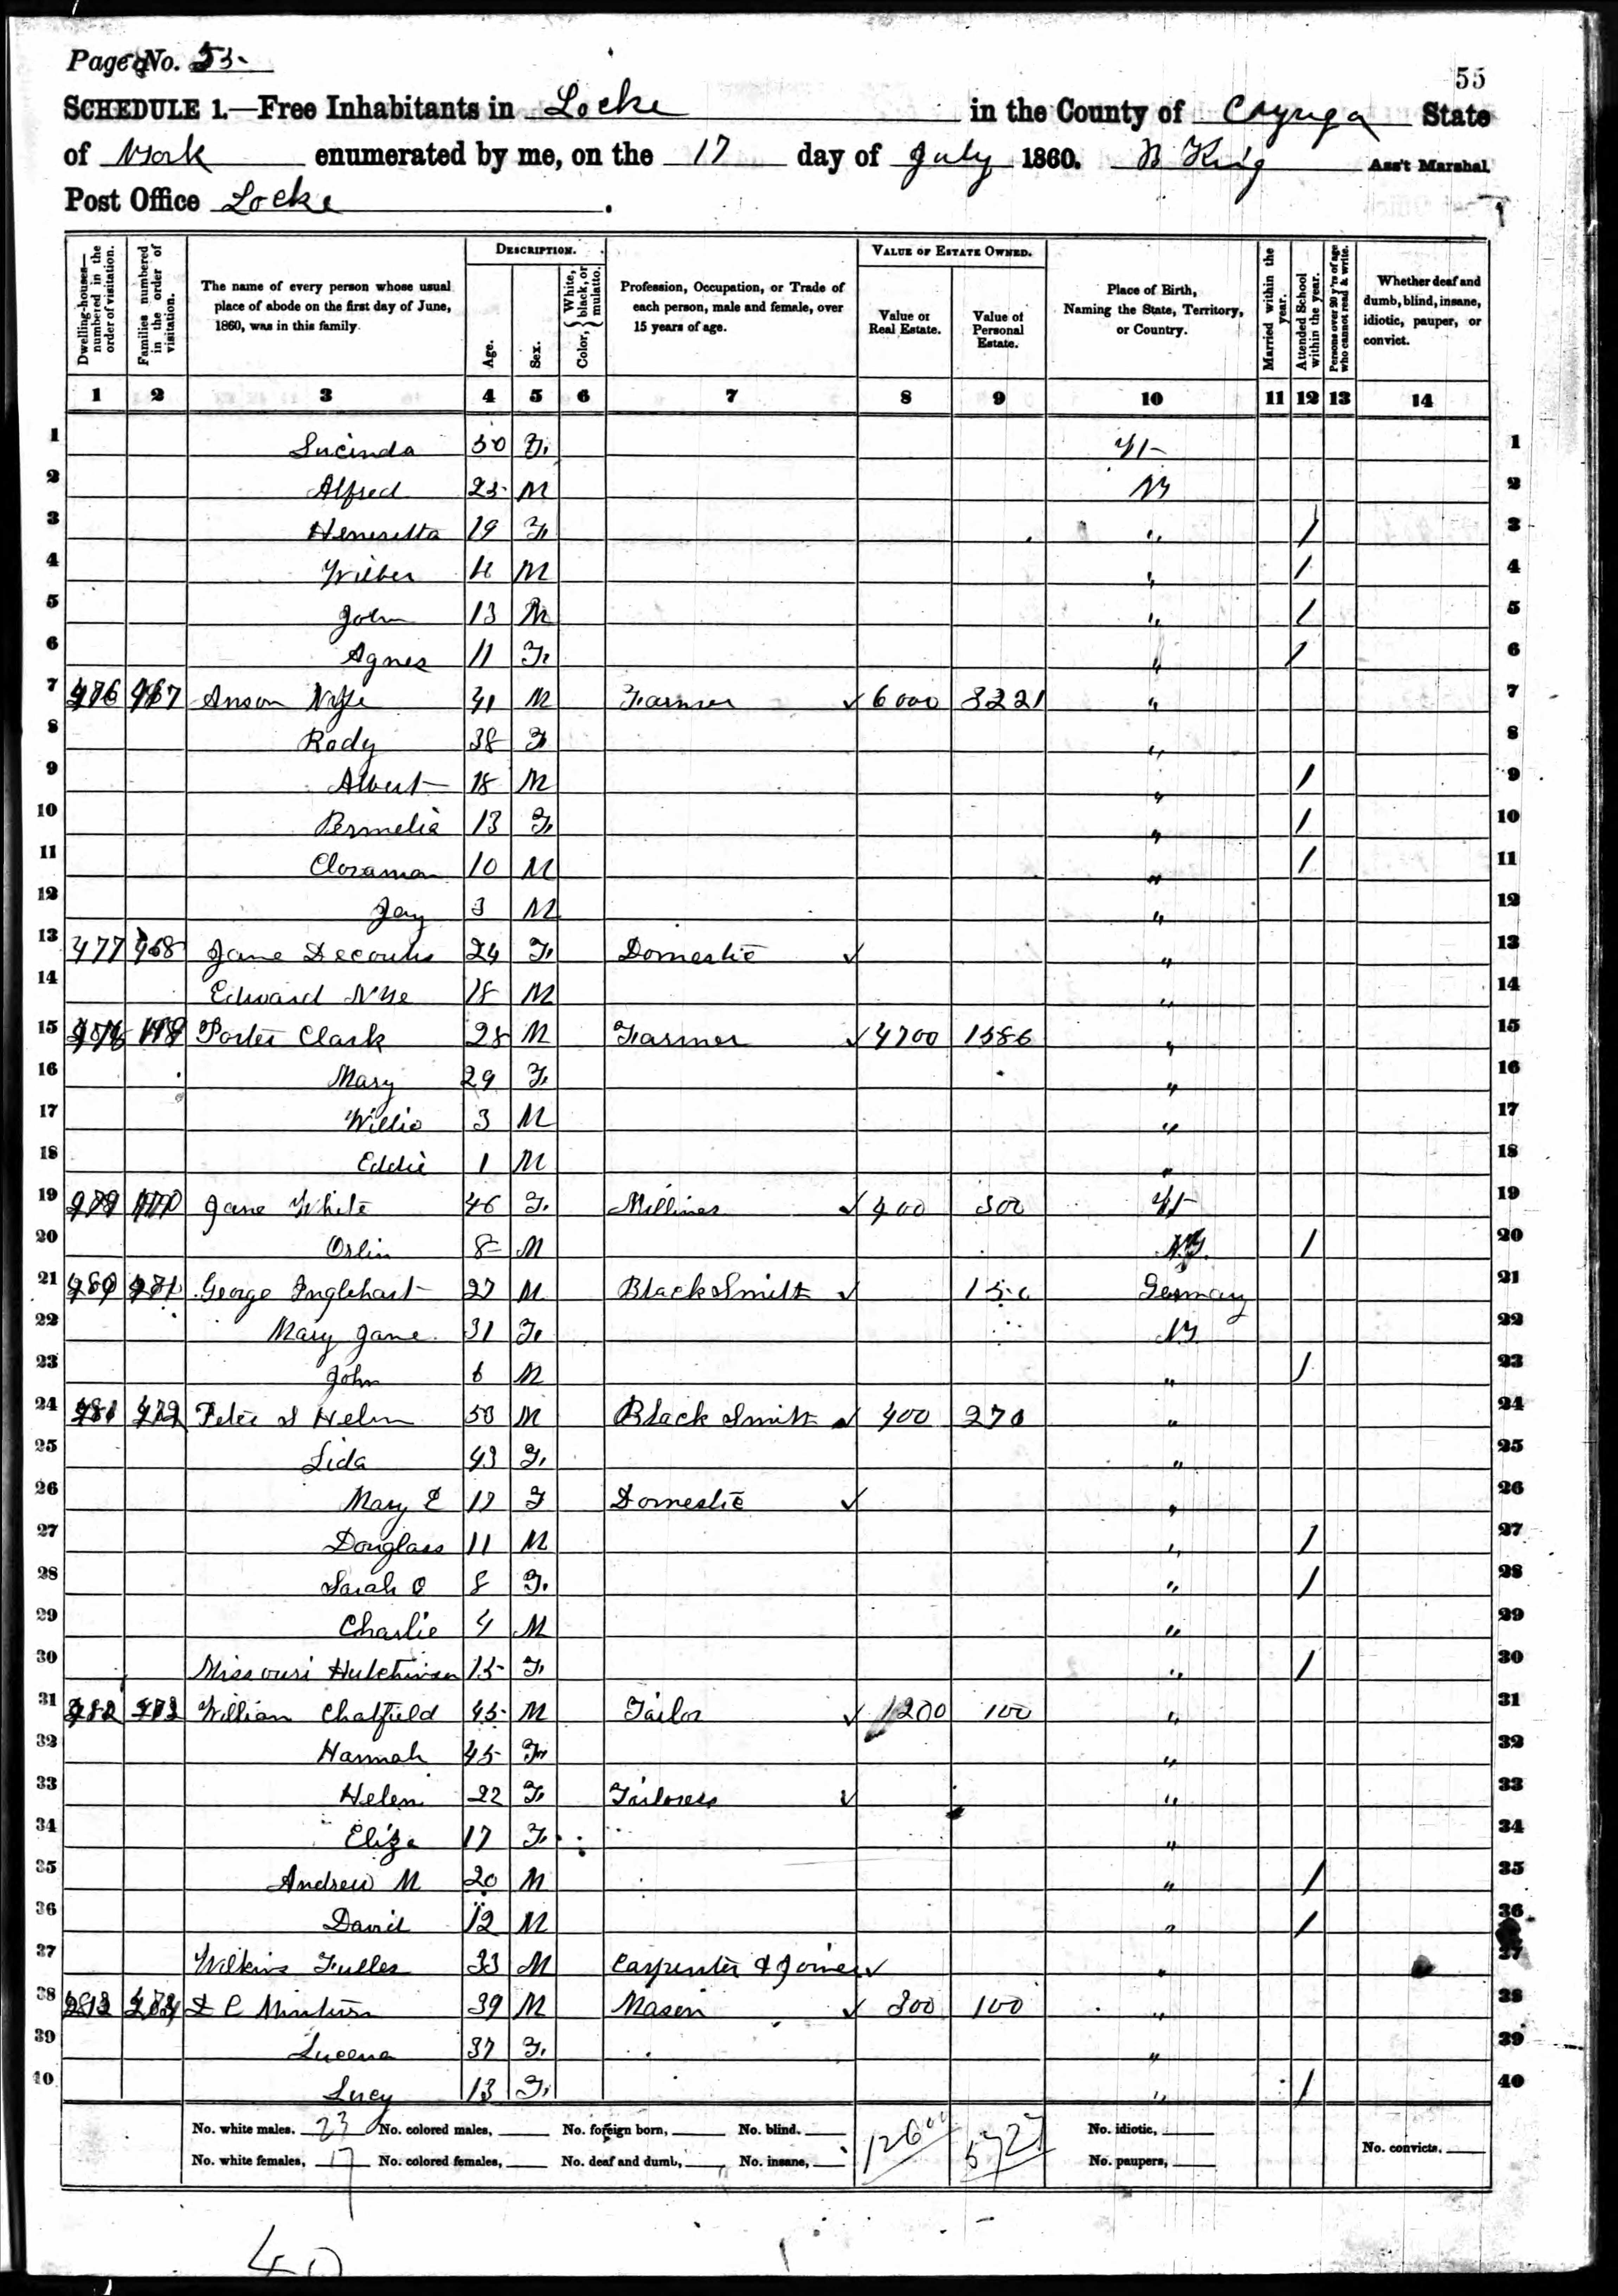 Page No. 53.
55
SCHEDULE 1.—Free Inhabitants in Locke in the County of Cayuga State
of York enumerated by me, on the 17 day of July 1860. N King Ass't Marshal.
Post Office Locke.
Dwelling-houses—numbered in the order of visitation.
Families numbered in the order of visitation.
The name of every person whose usual place of abode on the first day of June, 1860, was in this family.
DESCRIPTION.
Age.
Sex.
Color, White, black, or mulatto.
Profession, Occupation, or Trade of each person, male and female, over 15 years of age.
VALUE OF ESTATE OWNED.
Value of Real Estate.
Value of Personal Estate.
Place of Birth, Naming the State, Territory, or Country.
Married within the year.
Attended School within the year.
Persons over 20 y'rs of age who cannot read & write.
Whether deaf and dumb, blind, insane, idiotic, pauper, or convict.
1 2 3 4 5 6 7 8 9 10 11 12 13 14
1 Lucinda 50 F. 1
2 Alfred 25 M NY 2
3 Henrietta 19 F. " / 3
4 Wilber M " / 4
5 John 13 M " / 5
6 Agnes 11 F. " / 6
7 476 467 Anson Nye 41 M Farmer ✓ 6000 3221 " 7
8 Rody 38 F " 8
9 Albert 18 M " / 9
10 Permelia 13 F. " / 10
11 Cloraman 10 M " / 11
12 Jay 3 M " 12
13 477 468 Jane 24 F. Domestic ✓ " 13
14 Edward Nye 18 M " 14
15 Porter Clark 28 M Farmer ✓ 4700 1586 " 15
16 Mary 29 F. " 16
17 Willie 3 M " 17
18 Eddie 1 M " 18
19 Jane White 46 F. Milliner ✓ 400 300 19
20 Orlin 8 M N.Y. / 20
21 George Inglehart 27 M BlackSmith ✓ 150 Germany 21
22 Mary Jane 31 F. NY 22
23 John 6 M " / 23
24 481 472 Peter S Helm 50 M Black Smith ✓ 400 270 " 24
25 Lida 43 F. " 25
26 Mary E 17 F Domestic ✓ " 26
27 Douglass 11 M " / 27
28 Sarah O 8 F. " / 28
29 Charlie 4 M " 29
30 Missouri Hutchinson 15 F. " / 30
31 482 473 William Chatfield 45 M Tailor ✓ 1200 100 " 31
32 Hannah 45 F. " 32
33 Helen 22 F. Tailoress ✓ " 33
34 Eliza 17 F. " 34
35 Andrew M 20 M " / 35
36 David 12 M " / 36
37 Wilkins Fuller 33 M Carpenter & Joiner ✓ " 37
38 483 474 D C Minturn 39 M Mason ✓ 300 100 " 38
39 Lucena 37 F. " 39
40 Lucy 13 F. " / 40
No. white males, 23 No. colored males, No. foreign born, No. blind. 12600 5727 No. idiotic,
No. white females, 17 No. colored females, No. deaf and dumb, No. insane, No. paupers, No. convicts.
40